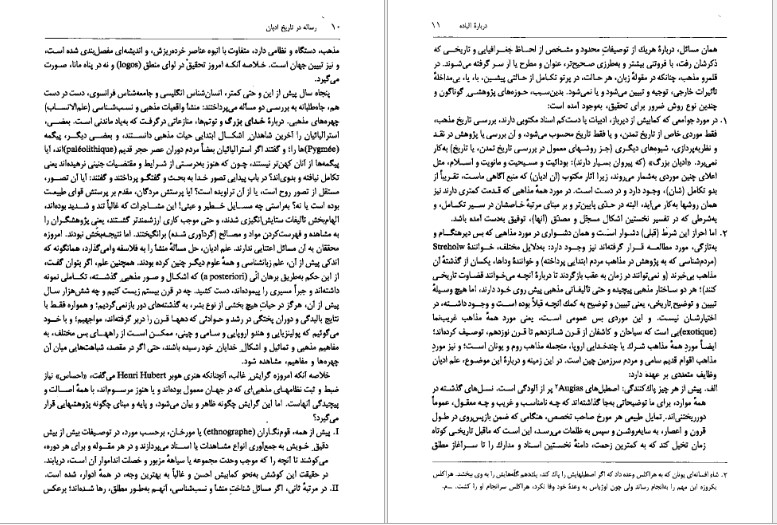 ۱۰ رساله در تاریخ ادیان
مذهب، دستگاه و نظامی دارد، متفاوت با انبوه عناصر خرده‌ریزش، و اندیشه‌ای مفصل‌بندی شده است،
و نیز تبیین جهان است. خلاصه آنکه امروز تحقیق در لوای منطق (logos) و نه در پناه مانا، صورت
می‌گیرد.
پنجاه سال پیش از این و حتی کمتر، انسان‌شناس انگلیسی و جامعه‌شناس فرانسوی، دست در دست
هم، جاه‌طلبانه به بررسی دو مسأله می‌پرداختند: منشأ واقعیات مذهبی و نسب‌شناسی (علم‌الانساب)
چهره‌های مذهبی. دربارهٔ خدای بزرگ و توتم‌ها، منازعاتی درگرفت که به‌یاد ماندنی است. بعضی،
استرالیائیان را آخرین شاهدان، اشکال ابتدایی حیات مذهبی دانستند، و بعضی دیگر، پیگمه
(Pygmée)ها را؛ و گفتند اگر استرالیائیان بعضاً مردم دوران عصر حجر قدیم (paléolithique)اند، آیا
پیگمه‌ها از آنان کهن‌تر نیستند، چون که هنوز به‌درستی از شرایط و مقتضیات جنینی نرهیده‌اند یعنی
تکامل نیافته و بدوی‌اند؟ در باب پیدایی تصور خدا به بحث و گفتگو پرداختند و گفتند: آیا آن تصور،
مستقل از تصور روح است، یا از آن تراویده است؟ آیا پرستش مردگان، مقدم بر پرستش قوای طبیعت
بوده است یا نه؟ به‌راستی چه مسایل خطیر و عبثی! این مشاجرات که غالباً تند و شدید بوده‌اند،
الهام‌بخش تألیفات ستایش‌انگیزی شدند، و حتی موجب کاری ارزشمندتر گشتند، یعنی پژوهشگران را
به مشاهده و فهرست‌کردن مواد و مصالح (گردآوری شده) برانگیختند. اما نتیجه‌بخش نبودند. امروزه
محققان به آن مسائل اعتنایی ندارند. علم ادیان، حل مسألهٔ منشأ را به فلاسفه وامی‌گذارد، همانگونه که
اندکی پیش از آن، علم زبانشناسی و همهٔ علوم دیگر چنین کرده بودند. همچنین علم، اگر بتوان گفت،
از این حکم به‌طریق برهان اِنّی (a posteriori) که اشکال و صور مذهبی گذشته، تکاملی نمونه
داشته‌اند و جبراً مسیری را پیموده‌اند، دست کشید. چه در قرن بیستم زیست کنیم و چه شش‌هزار سال
پیش از آن، هرگز در حیات هیچ بخشی از نوع بشر، به گذشته‌های دور بازنمی‌گردیم؛ و همواره فقط با
نتایج بالیدگی و دوران پختگی در رشد و حوادثی که دهها قرن را دربر گرفته‌اند، مواجهیم؛ و با خود
می‌گوئیم که پولینزیایی و هندو اروپایی و سامی و چینی، ممکن است از راههای بس مختلف، به
مفاهیم مذهبی و تماثیل و اشکال خدایان خود رسیده باشند، حتی اگر در مقصد شباهت‌هایی میان آن
چهره‌ها و مفاهیم، مشاهده شود.
خلاصه آنکه امروزه گرایش غالب، آنچنانکه هنری هوبر Henri Hubert می‌گفت، «احساس» نیاز
ضبط و ثبت نظامهای مذهبی‌ای که در جهان معمول بوده‌اند و یا هنوز مرسوم‌اند، با همهٔ اصالت و
پیچیدگی آنهاست. اما این گرایش چگونه ظاهر و بیان می‌شود، و پایه و مبنای چگونه پژوهشهایی قرار
می‌گیرد؟
I. پیش از همه، قوم‌نگاران (ethnographe) یا مورخان، برحسب مورد، در توصیفات بیش از پیش
دقیق خویش به جمع‌آوری انواع مشاهدات یا اسناد می‌پردازند و در هر مقوله و برای هر دوره،
می‌کوشند تا آنچه را که موجب وحدت مجموعه یا سیاههٔ مزبور و خصلت اندام‌وار آن است، دریابند.
در حقیقت این کوشش به‌نحو کمابیش احسن و غالباً به بهترین وجه، در همهٔ ادوار، شده است.
II. در مرتبهٔ ثانی، اگر مسائل شناخت منشأ و نسب‌شناسی، آنهم به‌طور مطلق، رها شده‌اند؛ برعکس
دربارهٔ الیاده ۱۱
همان مسائل، دربارهٔ هریک از توصیفات محدود و مشخص از لحاظ جغرافیایی و تاریخی که
ذکرشان رفت، با فروتنی بیشتر و به‌طرزی صحیح‌تر، عنوان و مطرح یا از سر گرفته می‌شوند. در
قلمرو مذهب، چنانکه در مقولهٔ زبان، هر حالت، در پرتو تکامل از حالتی پیشین، با، یا، بی‌مداخلهٔ
تأثیرات خارجی، توجیه و تبیین می‌شود و یا نمی‌شود. بدین‌سبب، حوزه‌های پژوهشی گوناگون و
چندین نوع روش ضرور برای تحقیق، به‌وجود آمده است:
۱. در مورد جوامعی که کمابیش از دیرباز، ادبیات یا دست‌کم اسناد مکتوبی دارند، بررسی تاریخ مذهب،
فقط موردی خاص از تاریخ تمدن، و یا فقط تاریخ محسوب می‌شود، و آن بررسی یا پژوهش در نقد
و نظریه‌پردازی، شیوه‌های دیگری (جز روشهای معمول در بررسی تاریخ تمدن، یا تاریخ) به‌کار
نمی‌برد. «ادیان بزرگ» (که پیروان بسیار دارند): بودائیت و مسیحیت و مانویت و اسلام، مثل
اعلای چنین موردی به‌شمار می‌روند، زیرا آثار مکتوب (آن ادیان) که منبع آگاهی ماست، تقریباً از
بدو تکامل (شان)، وجود دارد و در دست است. در مورد همهٔ مذاهبی که قدمت کمتری دارند نیز
همان روشها به‌کار می‌آید، البته در حدی پایین‌تر و بر مبنای مرتبهٔ خاصشان در سیر تکامل، و
به‌شرطی که در تفسیر نخستین اشکال مسجّل و مصدّق (آنها)، توفیق به‌دست آمده باشد.
۲. اما احراز این شرط (قبلی) دشوار است و همان دشواری در مورد مذاهبی که بس دیرهنگام و
به‌تازگی، مورد مطالعه قرار گرفته‌اند نیز وجود دارد: به‌دلایل مختلف، خوانندهٔ Strehlow
(مردم‌شناسی که به پژوهش در مذاهب مردم ابتدایی پرداخته) و خوانندهٔ وداها، یکسان از گذشتهٔ آن
مذاهب بی‌خبرند (و نمی‌توانند در زمان به عقب بازگردند تا دربارهٔ آنچه می‌خوانند قضاوت تاریخی
کنند)؛ هر دو ساختار مذهبی پیچیده و حتی تألیفاتی مذهبی پیش روی خود دارند، اما هیچ وسیلهٔ
تبیین و توضیح تاریخی، یعنی تبیین و توضیح به کمک آنچه قبلاً بوده است و وجود داشته، در
اختیارشان نیست. و این موردی بس عمومی است، یعنی مورد همهٔ مذاهب غریب‌نما
(exotique)یی است که سیاحان و کاشفان از قرن شانزدهم تا قرن نوزدهم، توصیف کرده‌اند؛
ایضاً مورد همهٔ مذاهب شرک یا چندخدایی اروپا، منجمله مذاهب روم و یونان است؛ و نیز مورد
مذاهب اقوام قدیم سامی و مردم سرزمین چین است. در این زمینه و دربارهٔ این موضوع، علم ادیان
وظایف متعددی بر عهده دارد:
الف. پیش از هر چیز پاک‌کنندگی: اصطبل‌های Augias۲ پر از آلودگی است. نسل‌های گذشته در
همهٔ موارد، برای ما توضیحاتی به‌جا گذاشته‌اند که چه نامناسب و غریب و چه معقول، عموماً
دورریختنی‌اند. تمایل طبیعی هر مورخ صاحب تخصص، هنگامی که ضمن بازپس‌روی در طول
قرون و اعصار، به سایه‌روشن و سپس به ظلمات می‌رسد، این است که ماقبل تاریخی کوتاه
زمان تخیل کند که به کمترین زحمت، دامنهٔ نخستین اسناد و مدارک را تا سرآغاز مطلق
۲. شاه افسانه‌ای یونان که به هراکلس وعده داد که اگر اصطبلهایش را پاک کند، یکدهم گله‌هایش را به وی بخشد. هراکلس
یکروزه این مهم را به‌انجام رساند ولی چون اوژیاس به وعدهٔ خود وفا نکرد، هراکلس سرانجام او را کشت. ــم.